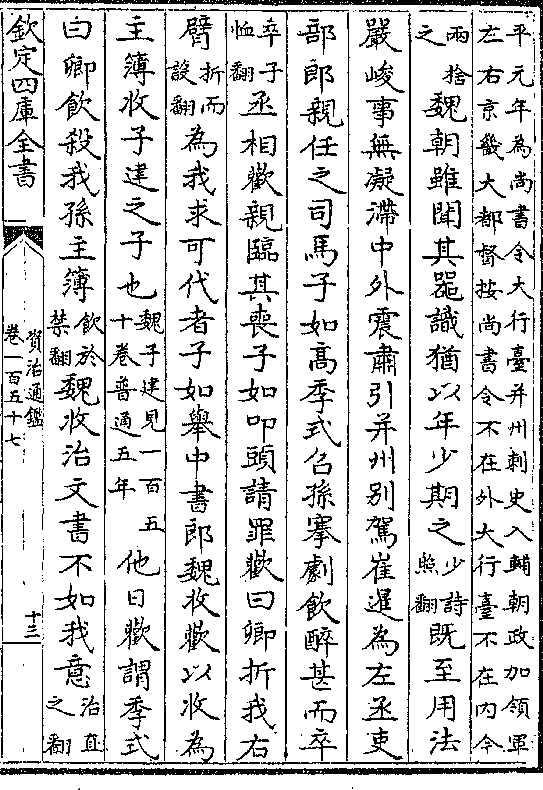 平元年為尚書令大行臺并州刺史入輔朝政加領軍
左右京畿大都督按尚書令不在外大行臺不在内今
兩捨
之
魏朝雖聞其器識猶以年少期之
少詩
照翻
既至用法
嚴峻事無凝滯中外震肅引并州别駕崔暹為左丞吏
部郎親任之司馬子如髙季式召孫搴劇飲醉甚而卒
卒子
恤翻
丞相歡親臨其喪子如叩頭請罪歡曰卿折我右
臂
折而
設翻
為我求可代者子如舉中書郎魏收歡以收為
主簿收子建之子也
魏子建見一百五
十卷普通五年
他日歡謂季式
曰卿飲殺我孫主簿
飲於
禁翻
魏收治文書不如我意
治直
之翻
欽定四庫全書
資治通鑑
卷一百五十七
十三